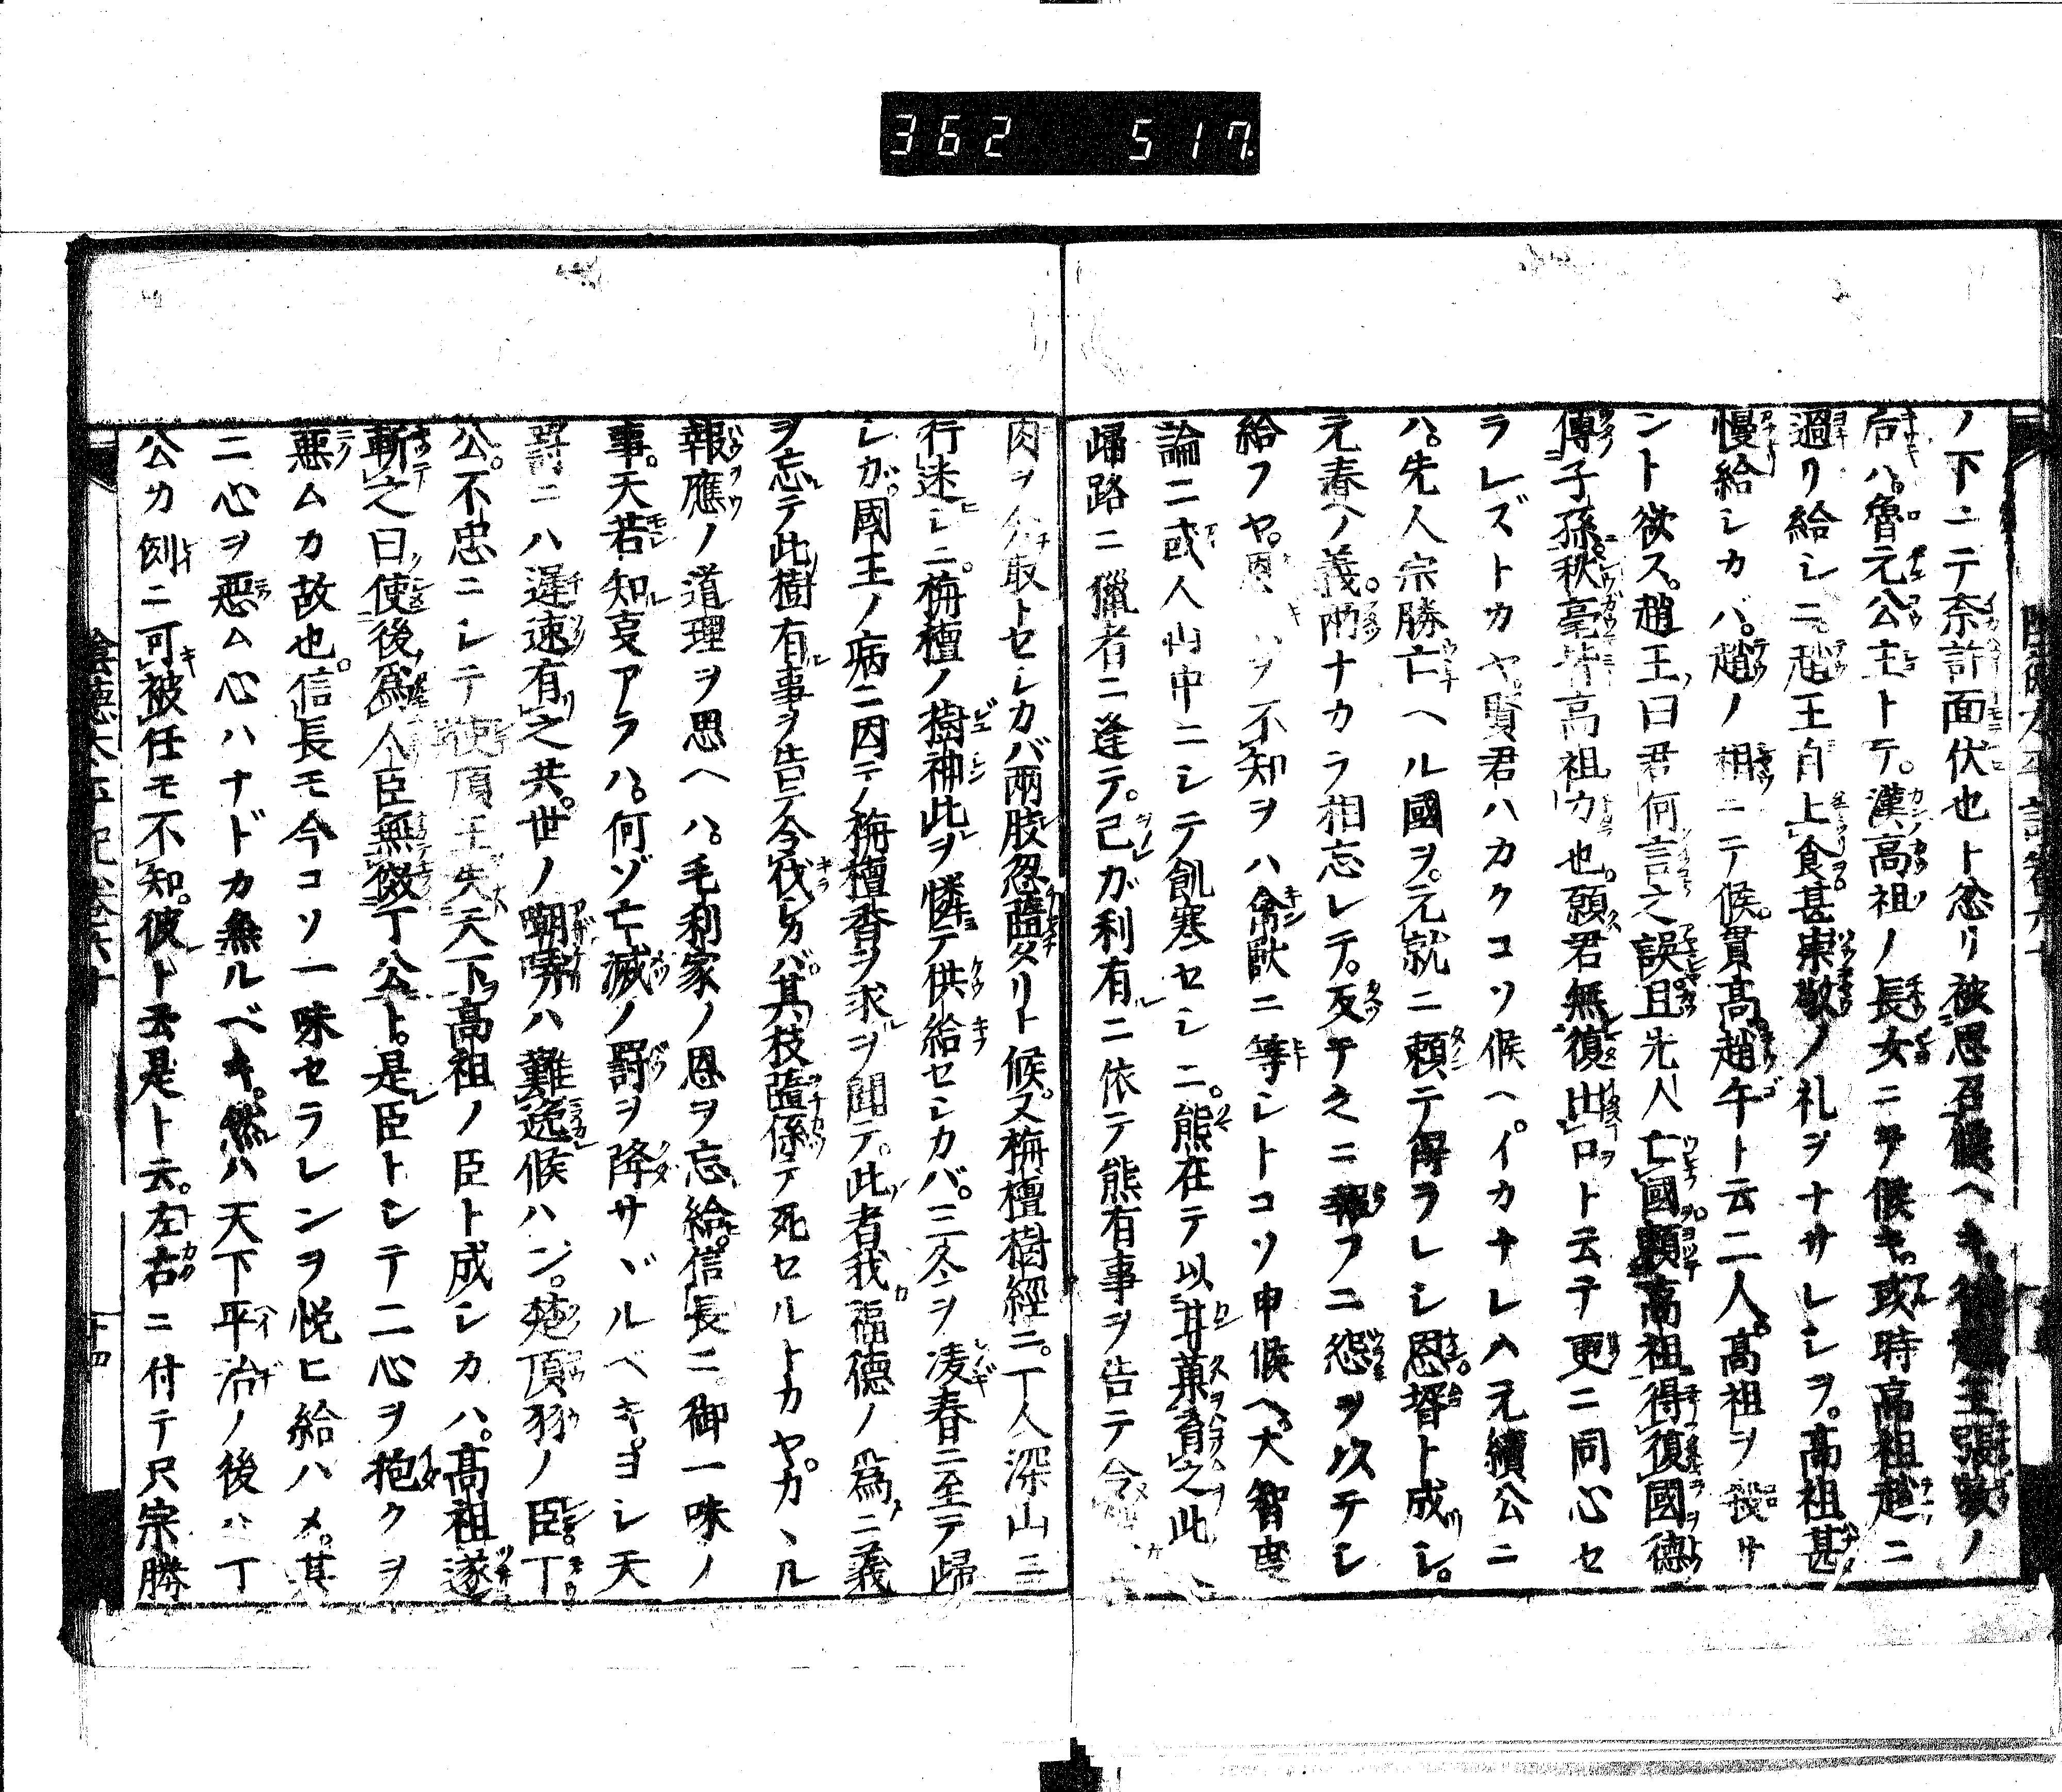 362 517
ノ下ニテ奈許面伏也ト忿リ被思召候ヘキ趙王張敖ノ
后ハ魯元公主トテ漢高祖ノ長女ニテ候キ或時高祖趙ニ
過リ給シニ趙王自上食甚崇敬ノ礼ヲナサレシヲ高祖甚
慢給シカバ趙ノ相ニテ候貫高趙午ト云二人高祖ヲ殺サ
ント欲ス趙王曰君何言之誤且先人亡國頼高祖得復國徳
傳子孫秋毫皆高祖力也願君無復出口ト云テ更ニ同心セ
ラレズトカヤ賢君ハカクコソ候ヘイカナレハ元續公ニ
ハ先人宗勝亡ヘル國ヲ元就ニ頼テ得ラレシ恩壻ト成シ
元春ヘノ義両ナカラ相忘レテ反テ之ニ報フニ怨ヲ以テシ
給フヤ恩ヲ不知ヲハ禽獣ニ等シトコソ申候ヘ大智度
論ニ或人山中ニシテ飢寒セシニ熊在テ以其菓養之此人
帰路ニ獵者ニ逢テ己ガ利有ニ依テ熊有事ヲ告テ令
肉ヲ分取トセシカバ両肢忽墮タリト候又栴檀樹經ニ一人深山ニ
行迷シニ栴檀ノ樹神此ヲ憐テ供給セシカバ三冬ヲ凌春ニ至テ歸
シガ國王ノ病ニ因テ栴檀香ヲ求ヲ聞テ此者我福徳ノ為ニ義
ヲ忘テ此樹有事ヲ告テ令伐シカバ其枝墮係テ死セルトカヤカヽル
報應ノ道理ヲ思ヘハ毛利家ノ恩ヲ忘給信長ニ御一味ノ
事天若知哀アラハ何ゾ亡滅ノ罰ヲ降サヾルベキヨシ天
罸ニハ遅速有之共世ノ嘲哢ハ難逸候ハン楚項羽ノ臣丁
公不忠ニシテ使項王失天下高祖ノ臣ト成シカハ高祖遂
斬之曰使後為人臣無傚丁公ト是臣トシテ二心ヲ抱クヲ
悪ムカ故也信長モ今コソ一味セラレンヲ悦ヒ給ハメ其
二心ヲ悪ム心ハナドカ無ルベキ然ハ天下平治ノ後ハ丁
公カ例ニ可被任モ不知彼ト云是ト云左右ニ付テ只宗勝